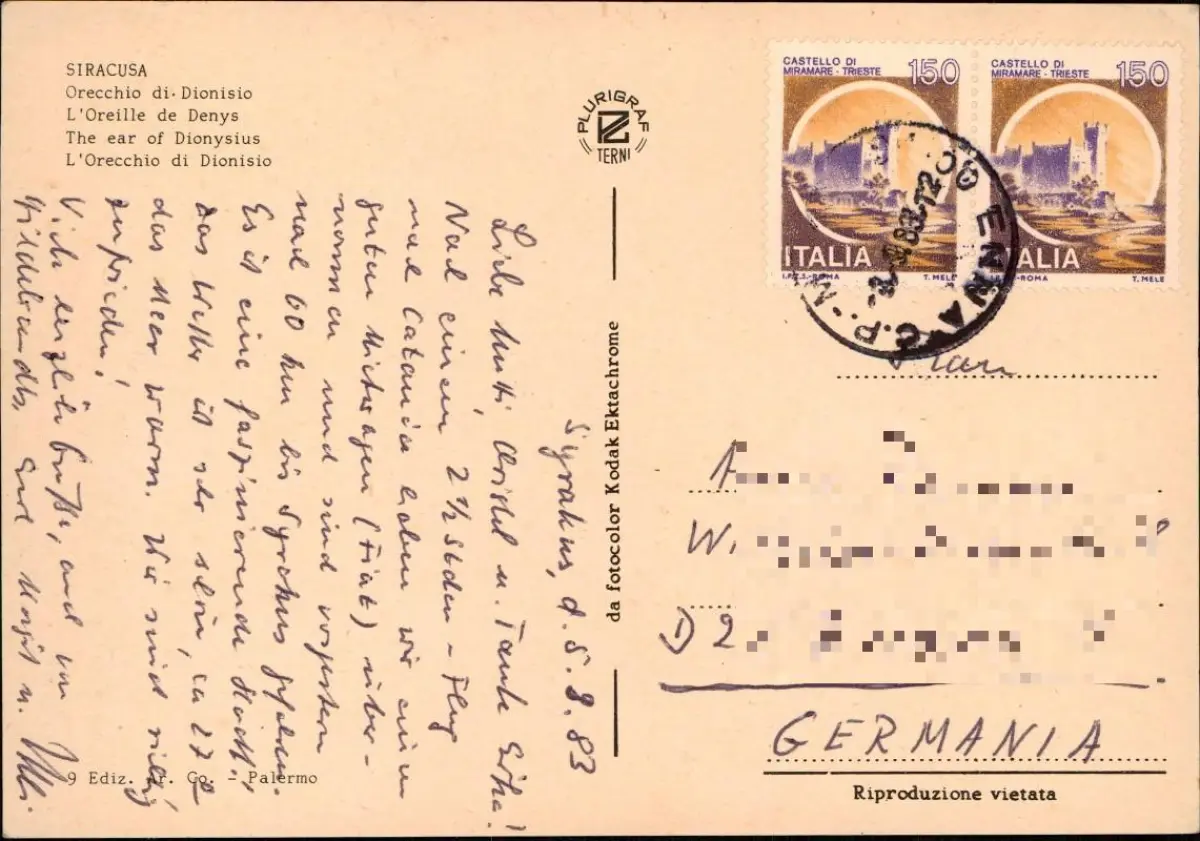 SIRACUSA
Orecchio di Dionisio
L'Oreille de Denys
The ear of Dionysius
L'Orecchio di Dionisio
PLURIGRAF
TERNI
CASTELLO DI
MIRAMARE - TRIESTE 150
ITALIA
I.P.Z.S.-ROMA T. MELE
CASTELLO DI
MIRAMARE - TRIESTE 150
ITALIA
ROMA T. MELE
ENNA C.P.
83-12
Syrakus, d. 5.8.83
Liebe Mutti, u. Tante Erika!
Nach einem 2 1/2 Stden - Flug
nach Catania haben wir einen
guten Mietwagen (Fiat) über-
nommen und sind vorgestern
nach 60 km bis Syrakus gefahren.
Es ist eine faszinierende Stadt,
das Wetter ist sehr schön, ca 27°
das Meer warm. Wir sind richtig
zufrieden!
Viele herzliche Grüße, auch von
Hildebrandts, Eure u.
da fotocolor Kodak Ektachrome
Frau
A
W.
D 2
GERMANIA
Riproduzione vietata
9 Ediz. Ar. Co. - Palermo